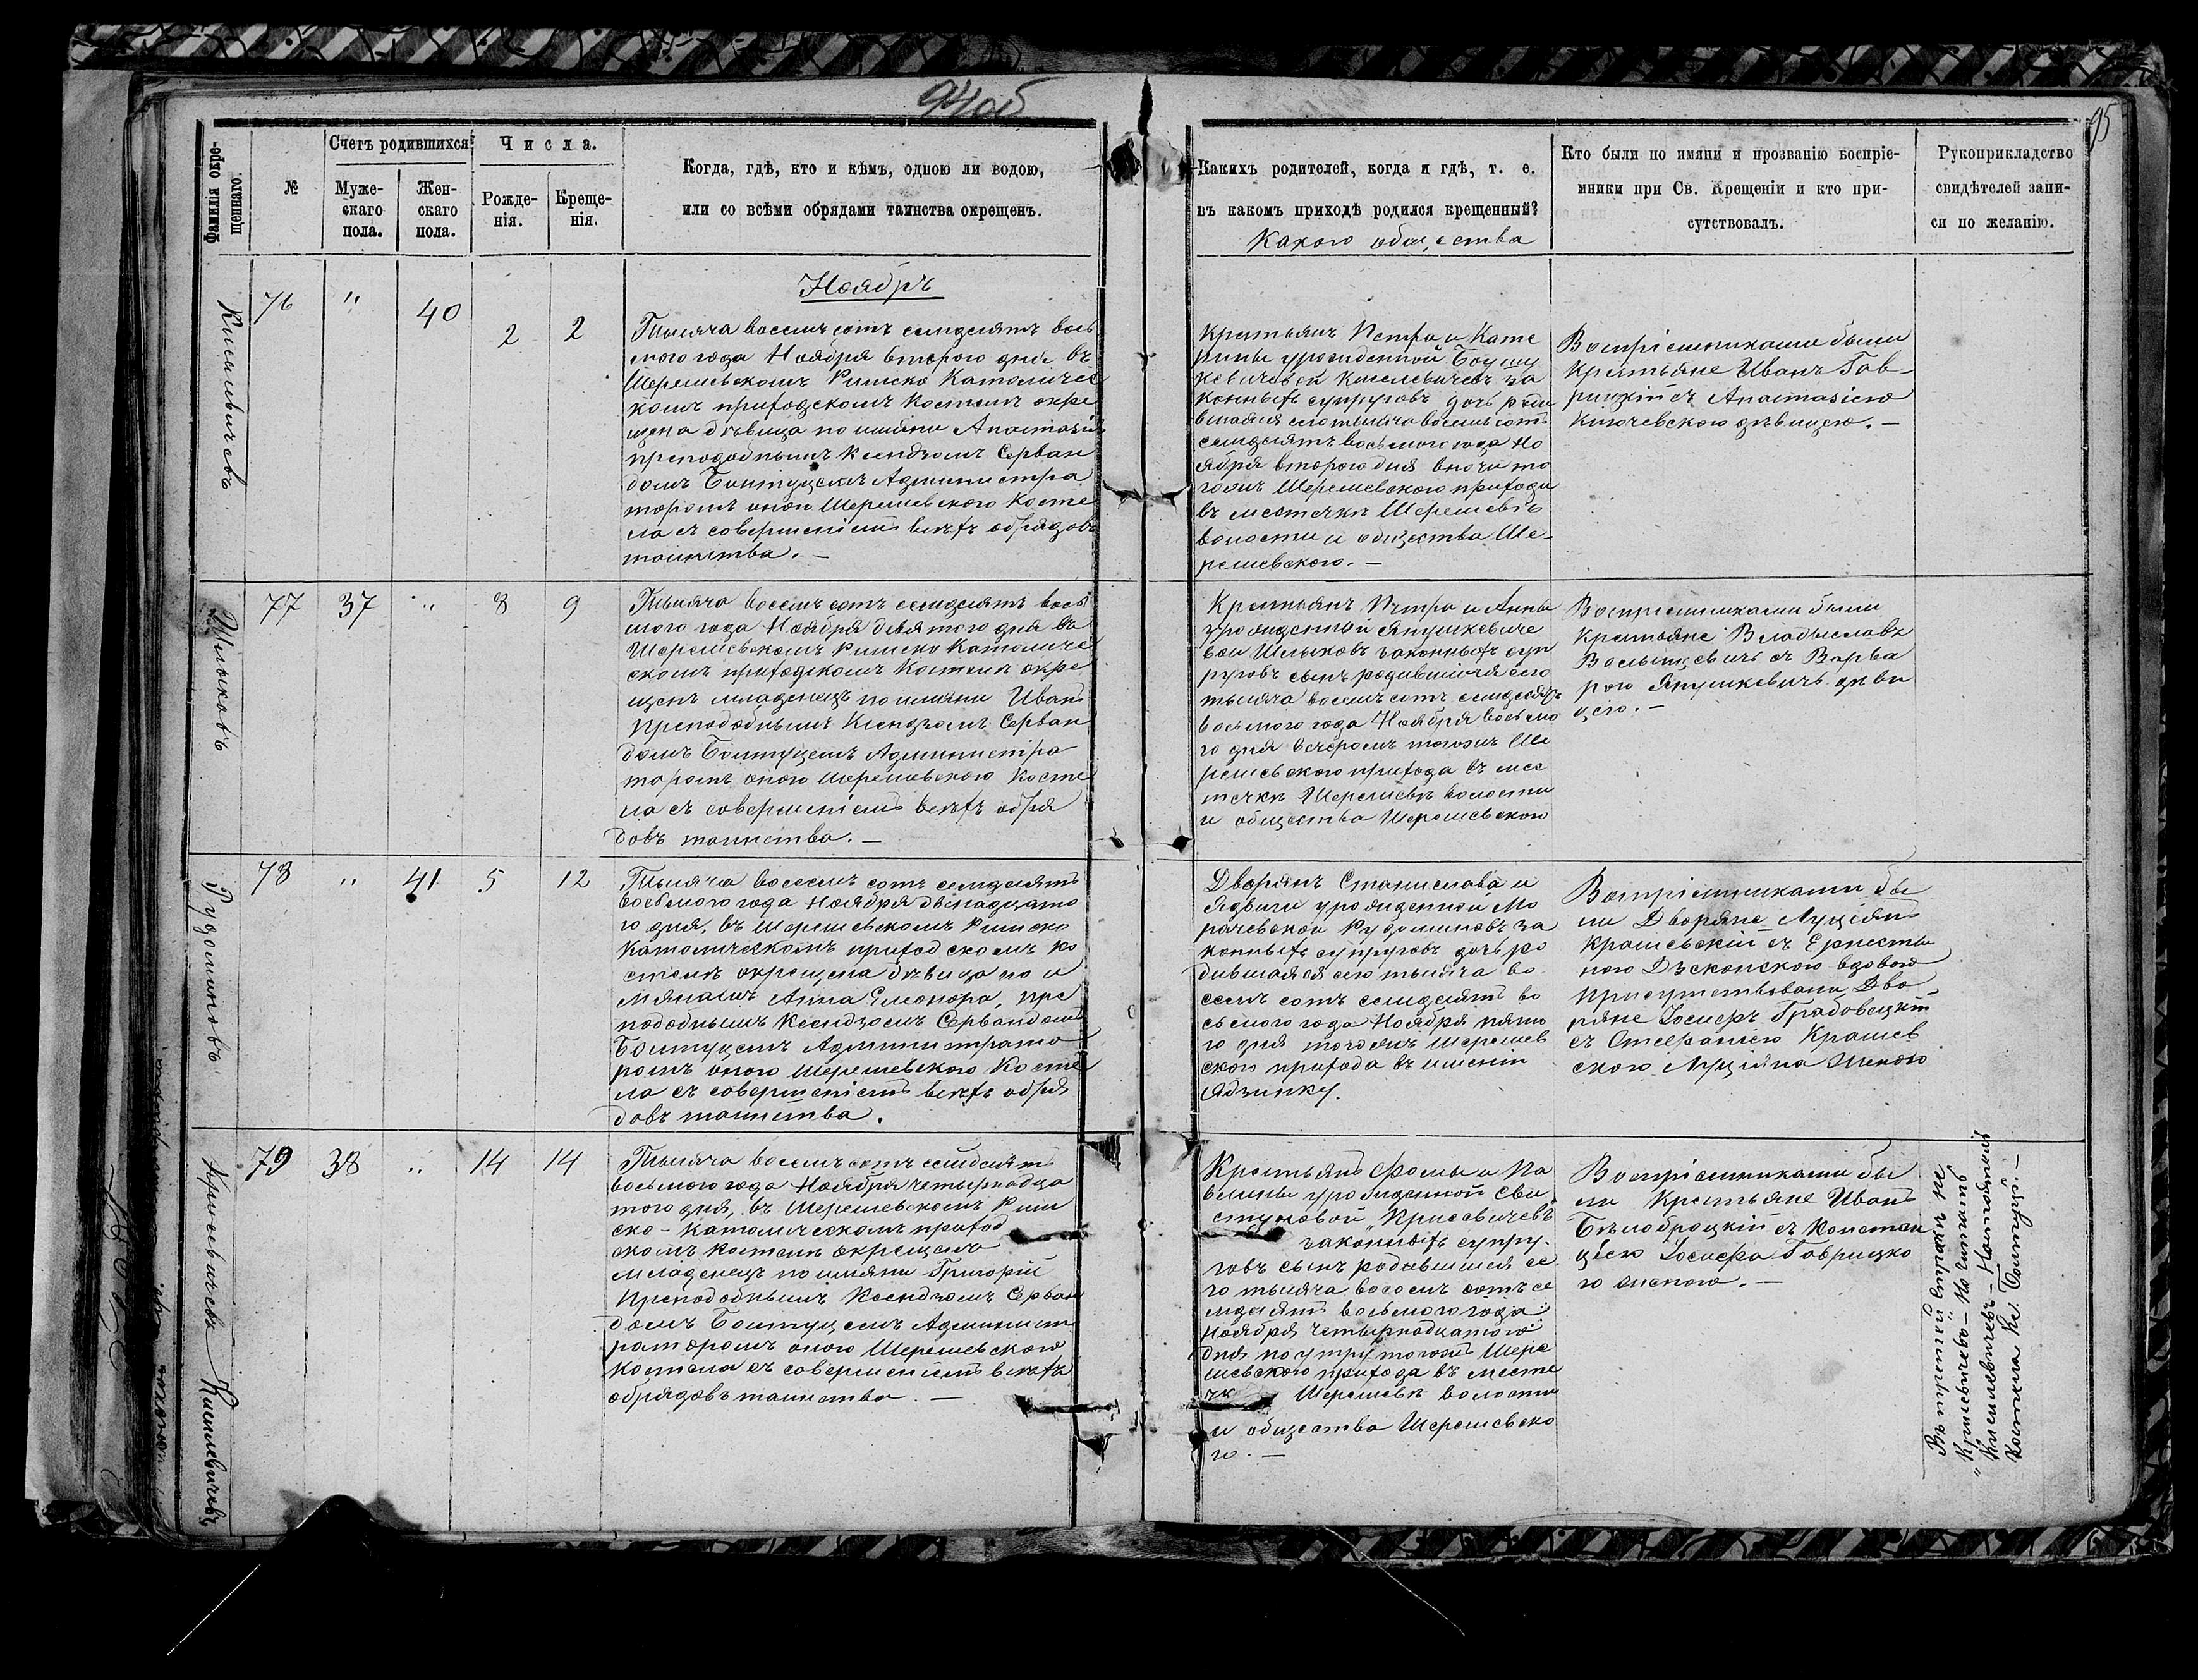 94об
95
Фамилія окре-
щеннаго.
№
Счетъ родившихся
Муже-
скаго
пола.
Жен-
скаго
пола.
Числа.
Рожде-
нія.
Креще-
нія.
Когда, гдѣ, кто и кѣмъ, одною ли водою,
или со всѣми обрядами таинства окрещенъ.
Какихъ родителей, когда и гдѣ, т. е.
въ какомъ приходѣ родился крещенный?
Какого общества
Кто были по имяни и прозванію воспріе-
мники при Св. Крещеніи и кто при-
сутствовалъ.
Рукоприкладство
свидѣтелей запи-
си по желанію.
Ноябрь
Киселевичевъ
76 " 40 2 2
Тысяча восемь сотъ семдесятъ вось
мого года Ноября второго дня въ
Шерешевскомъ Римско Католичес
комъ приходскомъ костелѣ окре
щена дѣвица по имяни Анастазія
преподобнымъ Ксендзомъ Серван
домъ Бонтуцемъ Администра
торомъ оного Шерешевского Косте
ла съ совершеніемъ всѣхъ обрядовъ
таинства. —
Крестьянъ Петра и Кате
рины урожденной
Киселевичевъ за
конныхъ супруговъ дочь роди
вшаяся сего тысяча восемь сотъ
семдесятъ восьмого года Но
ября второго дня вночи то
гожъ Шерешевского прихода
въ местечкѣ Шерешевѣ
волости и общества Ше-
решевского. —
Воспріемниками были
Крестьяне Иванъ Гав-
рицкій съ Анастазіею
Ключевскою дѣвицею. —
Шлыковъ
77 37 " 8 9
Тысяча восемь сотъ семдесятъ вось
мого года Ноября девятого дня въ
Шерешевскомъ Римско Католиче
скомъ приходскомъ Костелѣ окре
щенъ младенецъ по имяни Иванъ
Преподобнымъ Ксендзомъ Серван
домъ Бонтуцемъ Администра
торомъ оного Шерешевского Косте
ла съ совершеніемъ всѣхъ обря
довъ таинства. —
Крестьянъ Петра и Анны
урожденной Янушкевиче
вой Шлыковъ законныхъ суп
руговъ сынъ родившійся сего
тысяча восемь сотъ семдесятъ
восьмого года Ноября восьмо
го дня вечеромъ тогожъ Ше
решевского прихода въ мес
течкѣ Шерешевѣ волости
и общества Шерешевского
Воспріемниками были
Крестьяне Владиславъ
съ Варва
рою Янушкевичъ дѣви
цею. —
Рудоминовъ
78 " 41 5 12
Тысяча восемь сотъ семдесятъ
восьмого года Ноября двѣнадцато
го дня, въ Шерешевскомъ Римско
Католическомъ приходскомъ ко
стелѣ окрещена дѣвица по и
мянамъ Анна Елеонора, пре
подобнымъ Ксендзомъ Сервандомъ
Бонтуцемъ Администрато
ромъ оного Шерешевского Косте
ла съ совершеніемъ всѣхъ обря
довъ таинства.
Дворянъ Станислава и
Ядвиги урожденной Мо
рачевской Рудоминовъ за
конныхъ супруговъ дочь ро
дившаяся сего тысяча во
семь сотъ семдесятъ во
сьмого года Ноября пято
го дня тогожъ Шерешев
ского прихода въ имѣніи
Воспріемниками бы
ли Дворяне Луціянъ
Крашевскій съ Ернести
ною вдовою
присутствовали Дво
ряне Іосифъ Грабовецкій
съ Стефаніею Крашев
ского Луціяна женою
Крисевичевъ Киселевичевъ
79 38 " 14 14
Тысяча восемь сотъ семдесятъ
восьмого года Ноября четырнадца
того дня, въ Шерешевскомъ Рим
ско-Католическомъ приход
скомъ костелѣ окрещенъ
младенецъ по имяни Григорій
Преподобнымъ Ксендзомъ Серван
домъ Бонтуцемъ Админист
раторомъ оного Шерешевского
костела съ совершеніемъ всѣхъ
обрядовъ таинства. —
Крестьянъ Фомы и Па
влины урожденной Сви
стуновой „Крисевичевъ
законныхъ супру-
говъ сынъ родившійся се
го тысяча восемь сотъ се
мдесятъ восьмого года
Ноября четырнадцатого
дня поутру тогожъ Шере
шевского прихода въ месте
чкѣ Шерешевѣ волости
и общества Шерешевско
го. —
Воспріемниками бы
ли Крестьяне Иванъ
Бѣлобродцкій съ Констан
ціею Іосифа Гаврицко
го женою. —
Въ третей строкѣ не
Крисевичевъ — но читать
„Киселевичевъ — Настоятель
Костела Кс. Бонтуцъ. —